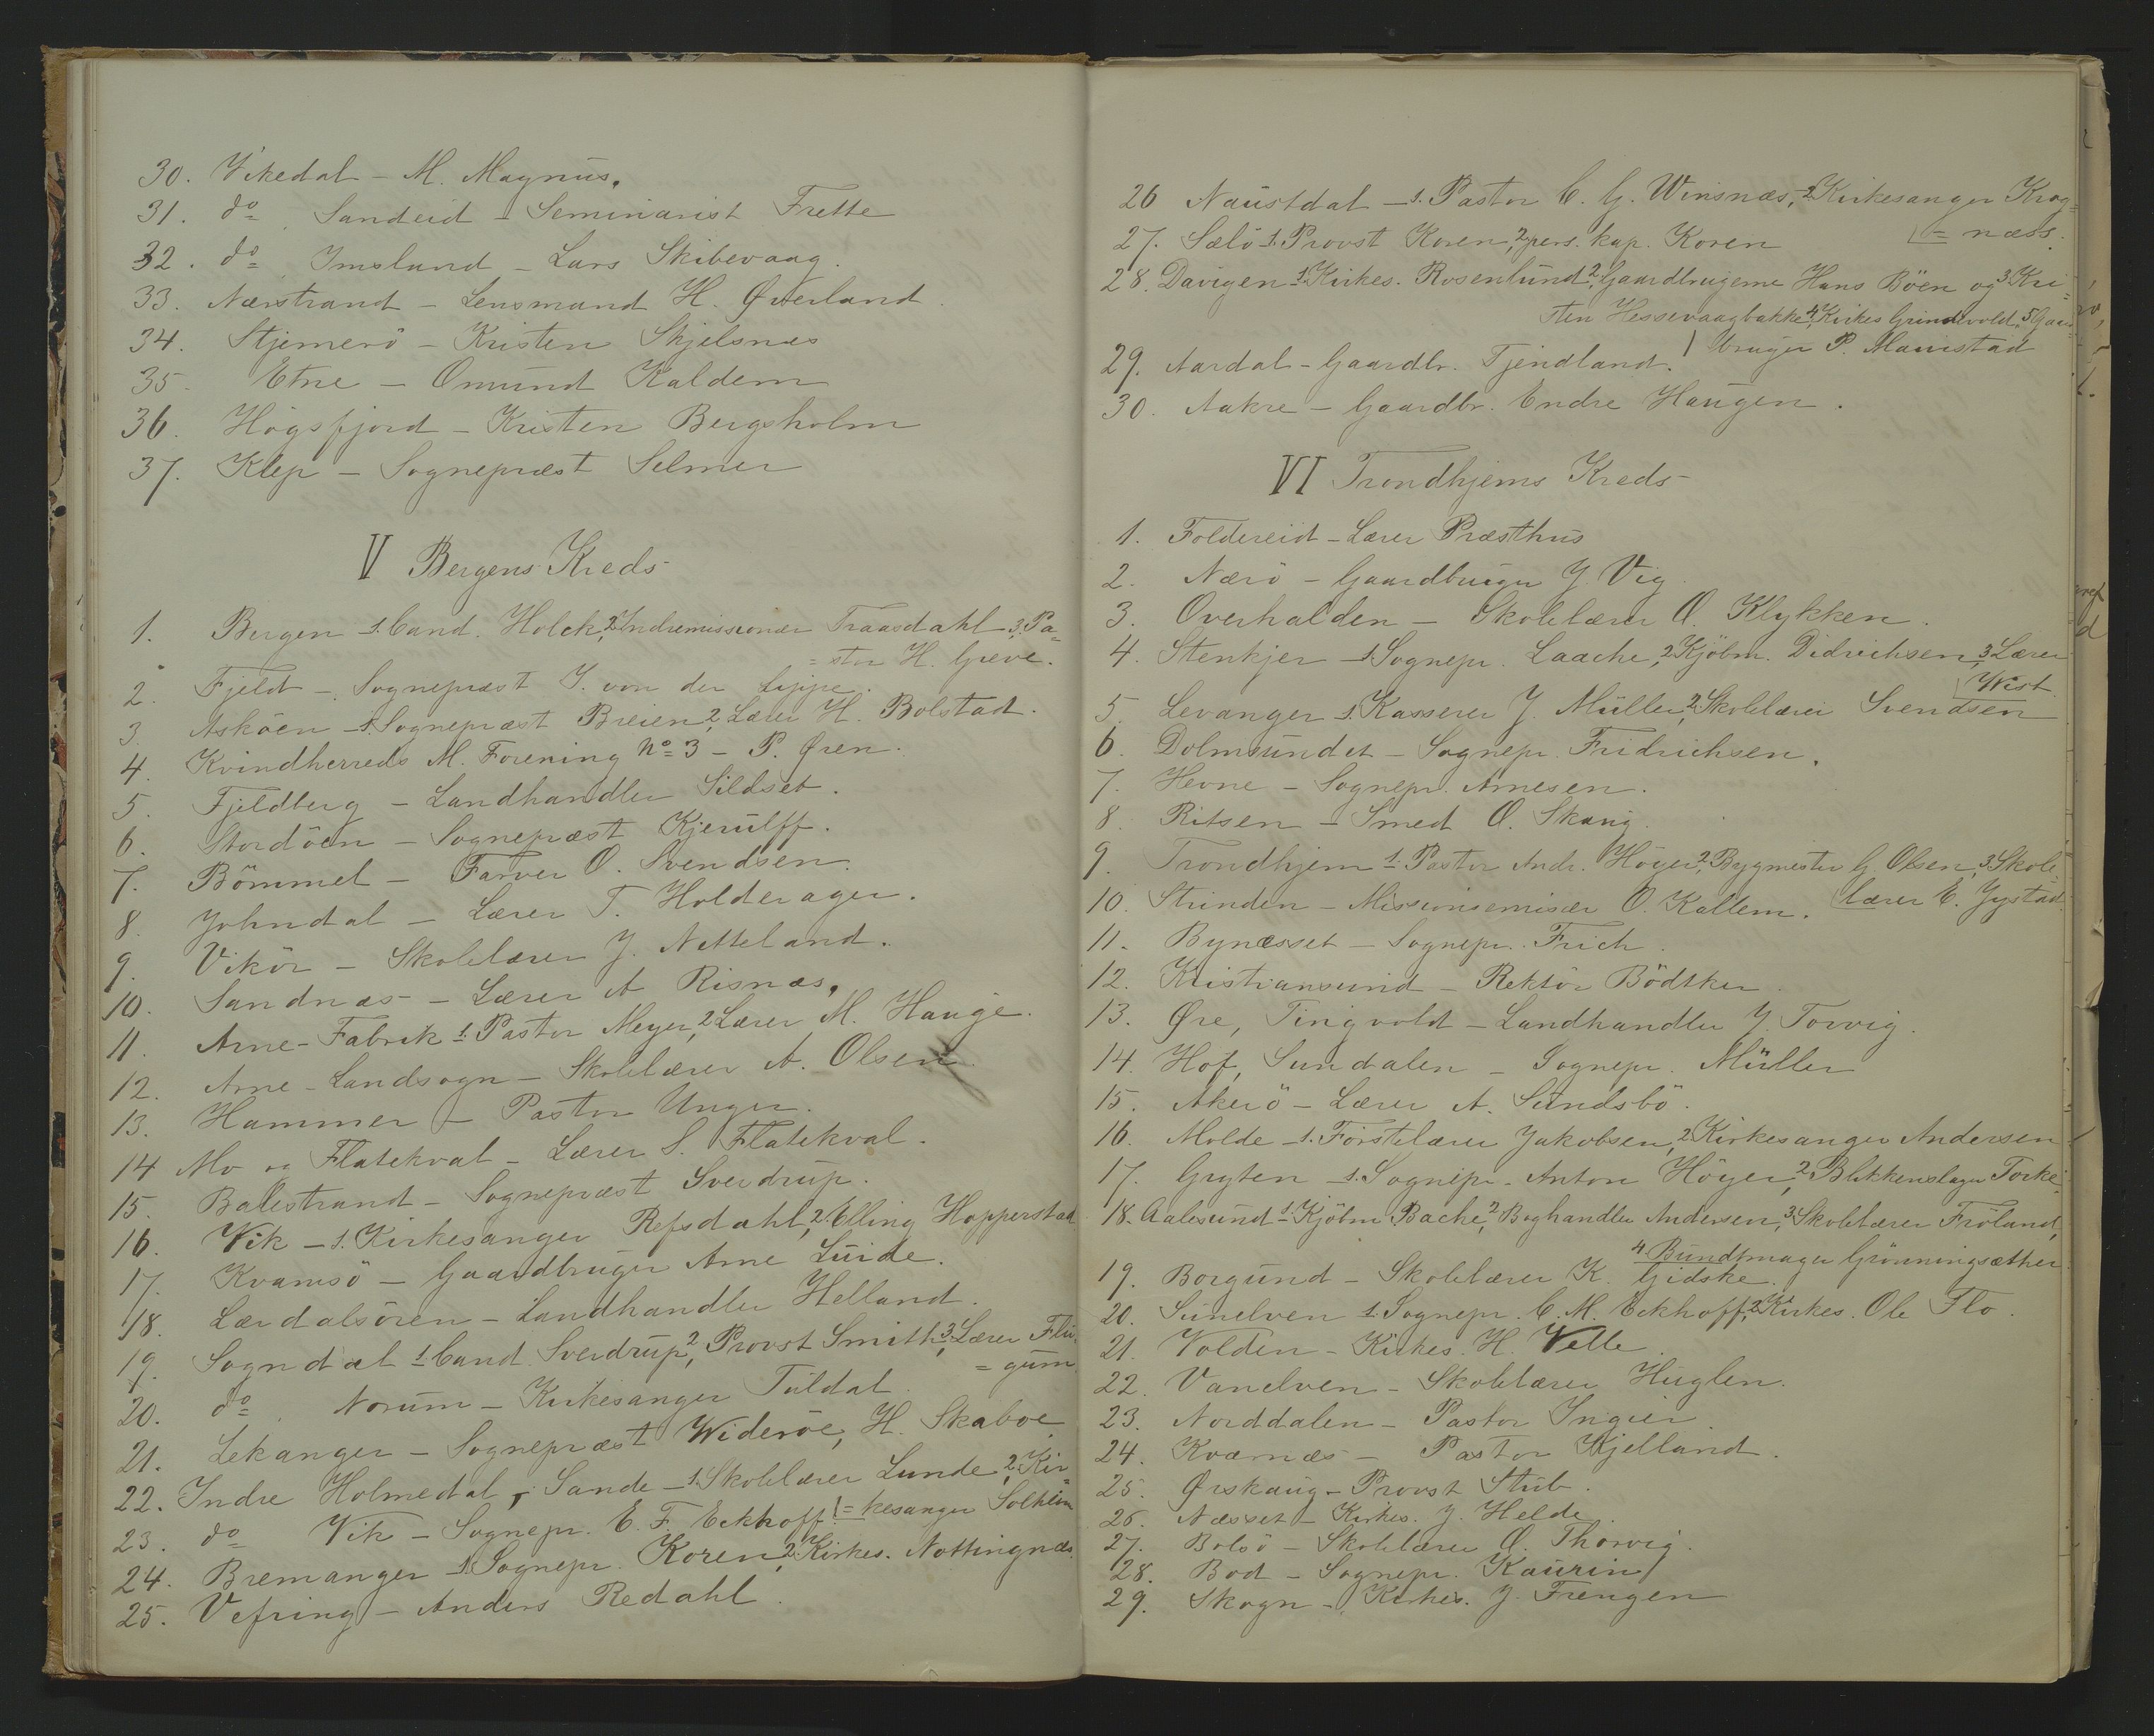 30. Vikedal - M. Magnus.
31. do Sandeid - Seminarist Frette
32. do Imsland - Lars Skibevaag.
33. Nærstrand - Lensmand H. Øverland.
34. Stjernerö - Kristen Skjelsnes
35. Etne - Omund Kaldem
36. Högsfjord - Kristen Bergsholm
37. Klep - Sognepræst Selmer
V Bergens Kreds
1. Bergen 1. Cand. Holck, 2. Indremissionær Traasdahl, 3. Pa=
=stor H. Greve.
2. Fjeld - Sognepræst J. von der Lippe.
3 Asköen - 1. Sognepræst Breien, 2, Lærer H. Bolstad.
4. Kvindherreds M. Forening No 3 - P. Øren.
5. Fjeldberg - Landhandler Sildset.
6. Stordöen - Sognepræst Kjerulff.
7. Bömmel - Farver O. Svendsen.
8. Johndal - Lærer T. Holderager.
9. Vikör - Skolelærer J. Netteland.
10. Sandnæs - Lærer A Risnæs.
11. Arne-Fabrik 1. Pastor Meyer, 2 Lærer M. Hauge.
12. Arne-Landsogn - Skolelærer A. Olsen
13. Hammer - Pastor Unger.
14 Mo og Flatekval - Lærer S. Flatekval.
15. Balestrand - Sognepræst Sverdrup.
16. Vik - 1. Kirkesanger Refsdahl, 2. Elling Hopperstad
17. Kvamsö - Gaardbruger Arne Luide.
18. Lærdalsören - Landhandler Helland.
19. Sogndal 1. Cand. Sverdrup, 2, Provst Smith, 3. Lærer Flu=
=gum
20. do Norum - Kirkesanger Tuldal.
21. Lekanger - Sognepræst Wideröe, H. Skaboe
22. Indre Holmedal, Sande - 1. Skolelærer Lunde, 2, Kir=
23. do Vik - Sognepr. E. F. Eckhoff. =kesanger Solheim
24. Bremanger 1. Sognepr. Koren, 2. Kirkes. Nottingnæs.
25. Vefring - Anders Redahl.
26 Naustdal - 1. Pastor C. G. Winsnæs, 2. Kirkesanger Krog=
27. Selö 1. Provst Koren, 2, pers. kap. Koren =næss.
28. Davigen 1. Kirkes. Rosenlund, 2. Gaardbrugerne Hans Böen og 3 Kri=
sten Hessevaagbakke, 4. Kirkes Grindvold, 5 Gaard
29. Aardal - Gaardbr. Tjendland. bruger P. Maurstad
30. Aakre - Gaardbr. Endre Haugen.
VI Trondhjems Kreds
1. Foldereid - Lærer Præsthus
2. Nærö - Gaardbruger J. Vig
3. Overhalden - Skolelærer O. Klykken.
4. Stenkjer - 1. Sognepr. Laache, 2. Kjöbm. Didrichsen, 3 Lærer
Wist
5. Levanger 1. Kasserer J. Müller, 2, Skolelærer Svendsen
6. Dolmsundet - Sognepr. Fridrichsen.
7. Hevne - Sognepr. Arnesen.
8. Ritsen - Smed O. Skaug.
9. Trondhjem 1. Pastor Andr. Höyer, 2. Bygmester G. Olsen, 3. Skole
10. Strinden - Missionsemisær O. Kallem. lærer E. Jystad.
11. Bynæsset - Sognepr. Frich.
12. Kristiansund - Rektor Bödtker.
13. Øre, Tingvold - Landhandler J. Torvig.
14. Hof, Sundalen - Sognepr. Müller
15. Akerö - Lærer A. Sundsbö.
16. Molde - 1. Förstelærer Jakobsen, 2. Kirkesanger Andersen
17. Gryten - 1. Sognepr. Anton Höyer, 2. Blikkenslager Torke
18. Aalesund 1. Kjöbm Bache, 2, Boghandler Andersen, 3. Skolelærer Fröland,
4. Bundtmager Grönningsæther
19. Borgund - Skolelærer K. Gidske.
20. Sunelven 1. Sognepr. C. M. Eckhoff, 2. Kirkes. Ole Flo.
21. Volden - Kirkes. H. Velle.
22. Vanelven - Skolelærer Huglen.
23. Norddalen - Pastor Ingier.
24. Kværnæs - Pastor Kjelland.
25. Ørskaug - Provst Stub.
26. Næsset - Kirkes. J. Helde.
27. Bolsö - Skolelærer O. Thorvig.
28. Bod - Sognepr. Kaurin
29. Skogn - Kirkes. J. Frengen